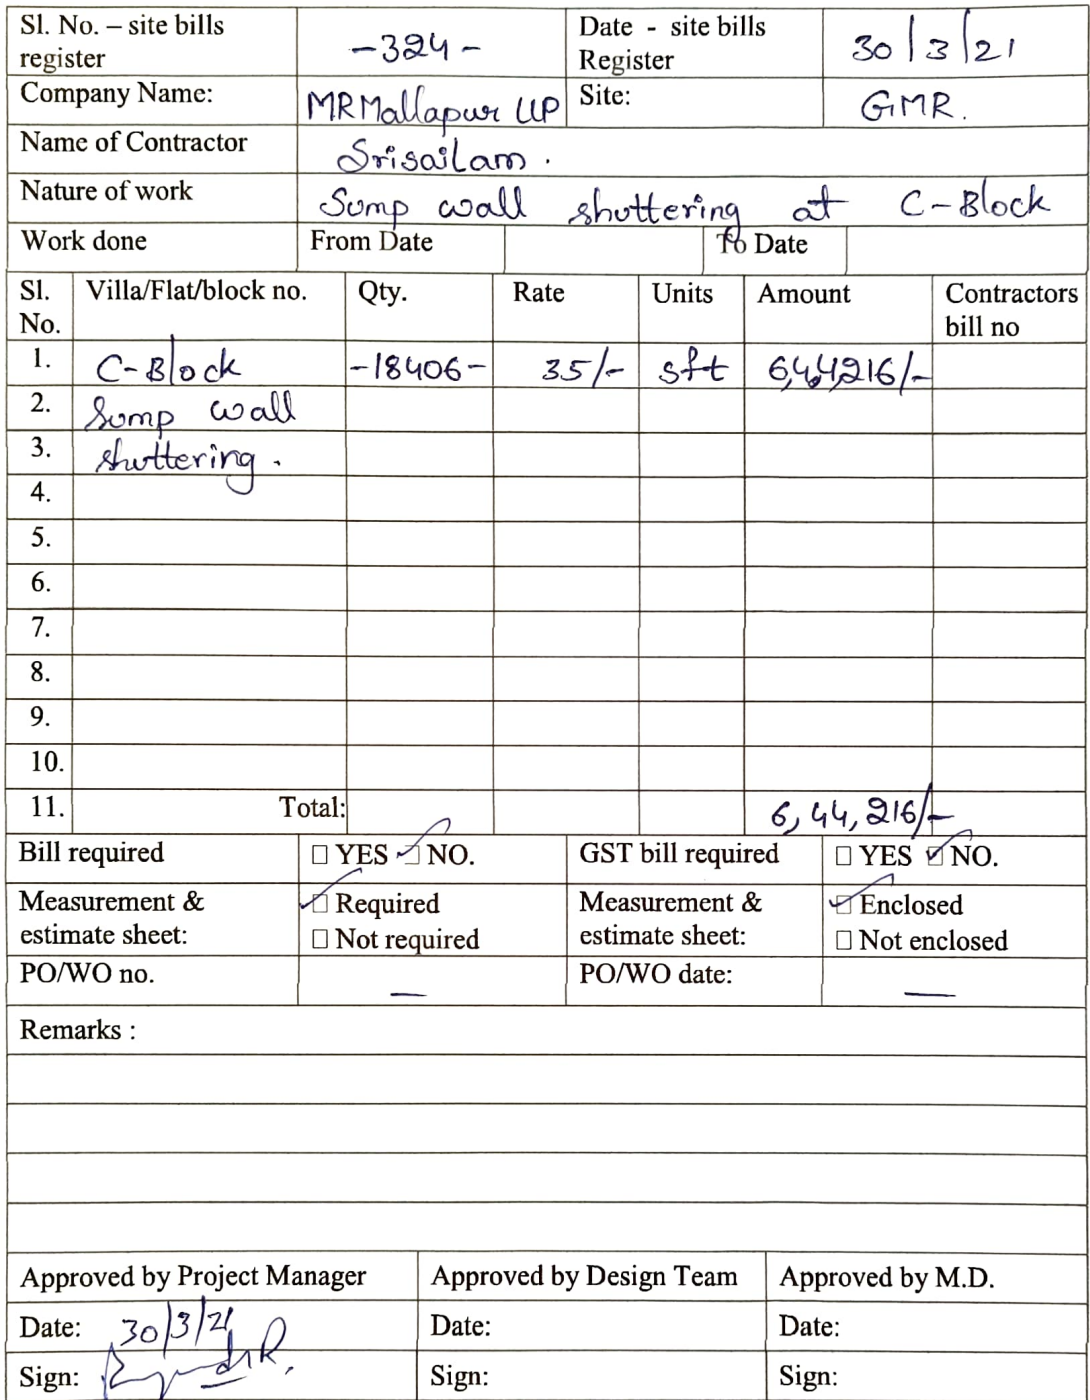 Sl. No. – site bills register -324- Date - site bills Register 30/3/21
Company Name: MRMallapur LLP Site: GMR.
Name of Contractor Srisailam.
Nature of work Sump wall shuttering at C-Block
Work done From Date To Date
Sl. No. Villa/Flat/block no. Qty. Rate Units Amount Contractors bill no
1. C-Block -18406- 35/- sft 6,44,216/-
2. Sump wall
3. shuttering.
4.
5.
6.
7.
8.
9.
10.
11. Total: 6,44,216/-
Bill required ☐ YES ☑ NO. GST bill required ☐ YES ☑ NO.
Measurement & estimate sheet: ☑ Required ☐ Not required Measurement & estimate sheet: ☑ Enclosed ☐ Not enclosed
PO/WO no. — PO/WO date: —
Remarks :
Approved by Project Manager Approved by Design Team Approved by M.D.
Date: 30/3/21 Date: Date:
Sign: Sign: Sign: